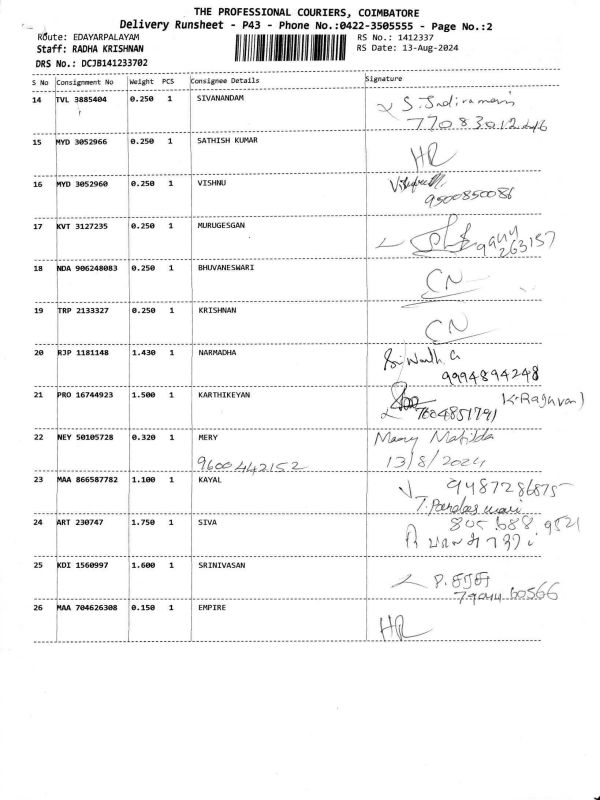 THE PROFESSIONAL COURIERS, COIMBATORE
Delivery Runsheet - P43 - Phone No.:0422-3505555 - Page No.:2
Route: EDAYARPALAYAM RS No.: 1412337
Staff: RADHA KRISHNAN RS Date: 13-Aug-2024
DRS No.: DCJB141233702
S No Consignment No Weight PCS Consignee Details Signature
14 TVL 3885404 0.250 1 SIVANANDAM
15 MYD 3052966 0.250 1 SATHISH KUMAR HR
16 MYD 3052960 0.250 1 VISHNU
9500850086
17 KVT 3127235 0.250 1 MURUGESGAN
263157
18 NDA 906248083 0.250 1 BHUVANESWARI CN
19 TRP 2133327 0.250 1 KRISHNAN CN
20 RJP 1181148 1.430 1 NARMADHA
9994894248
21 PRO 16744923 1.500 1 KARTHIKEYAN K.Raghvan
7604851791
22 NEY 50105728 0.320 1 MERY Mary Matilda
9600442152 13/8/2024
23 MAA 866587782 1.100 1 KAYAL 9487286875
24 ART 230747 1.750 1 SIVA
25 KDI 1560997 1.600 1 SRINIVASAN
26 MAA 704626308 0.150 1 EMPIRE HR